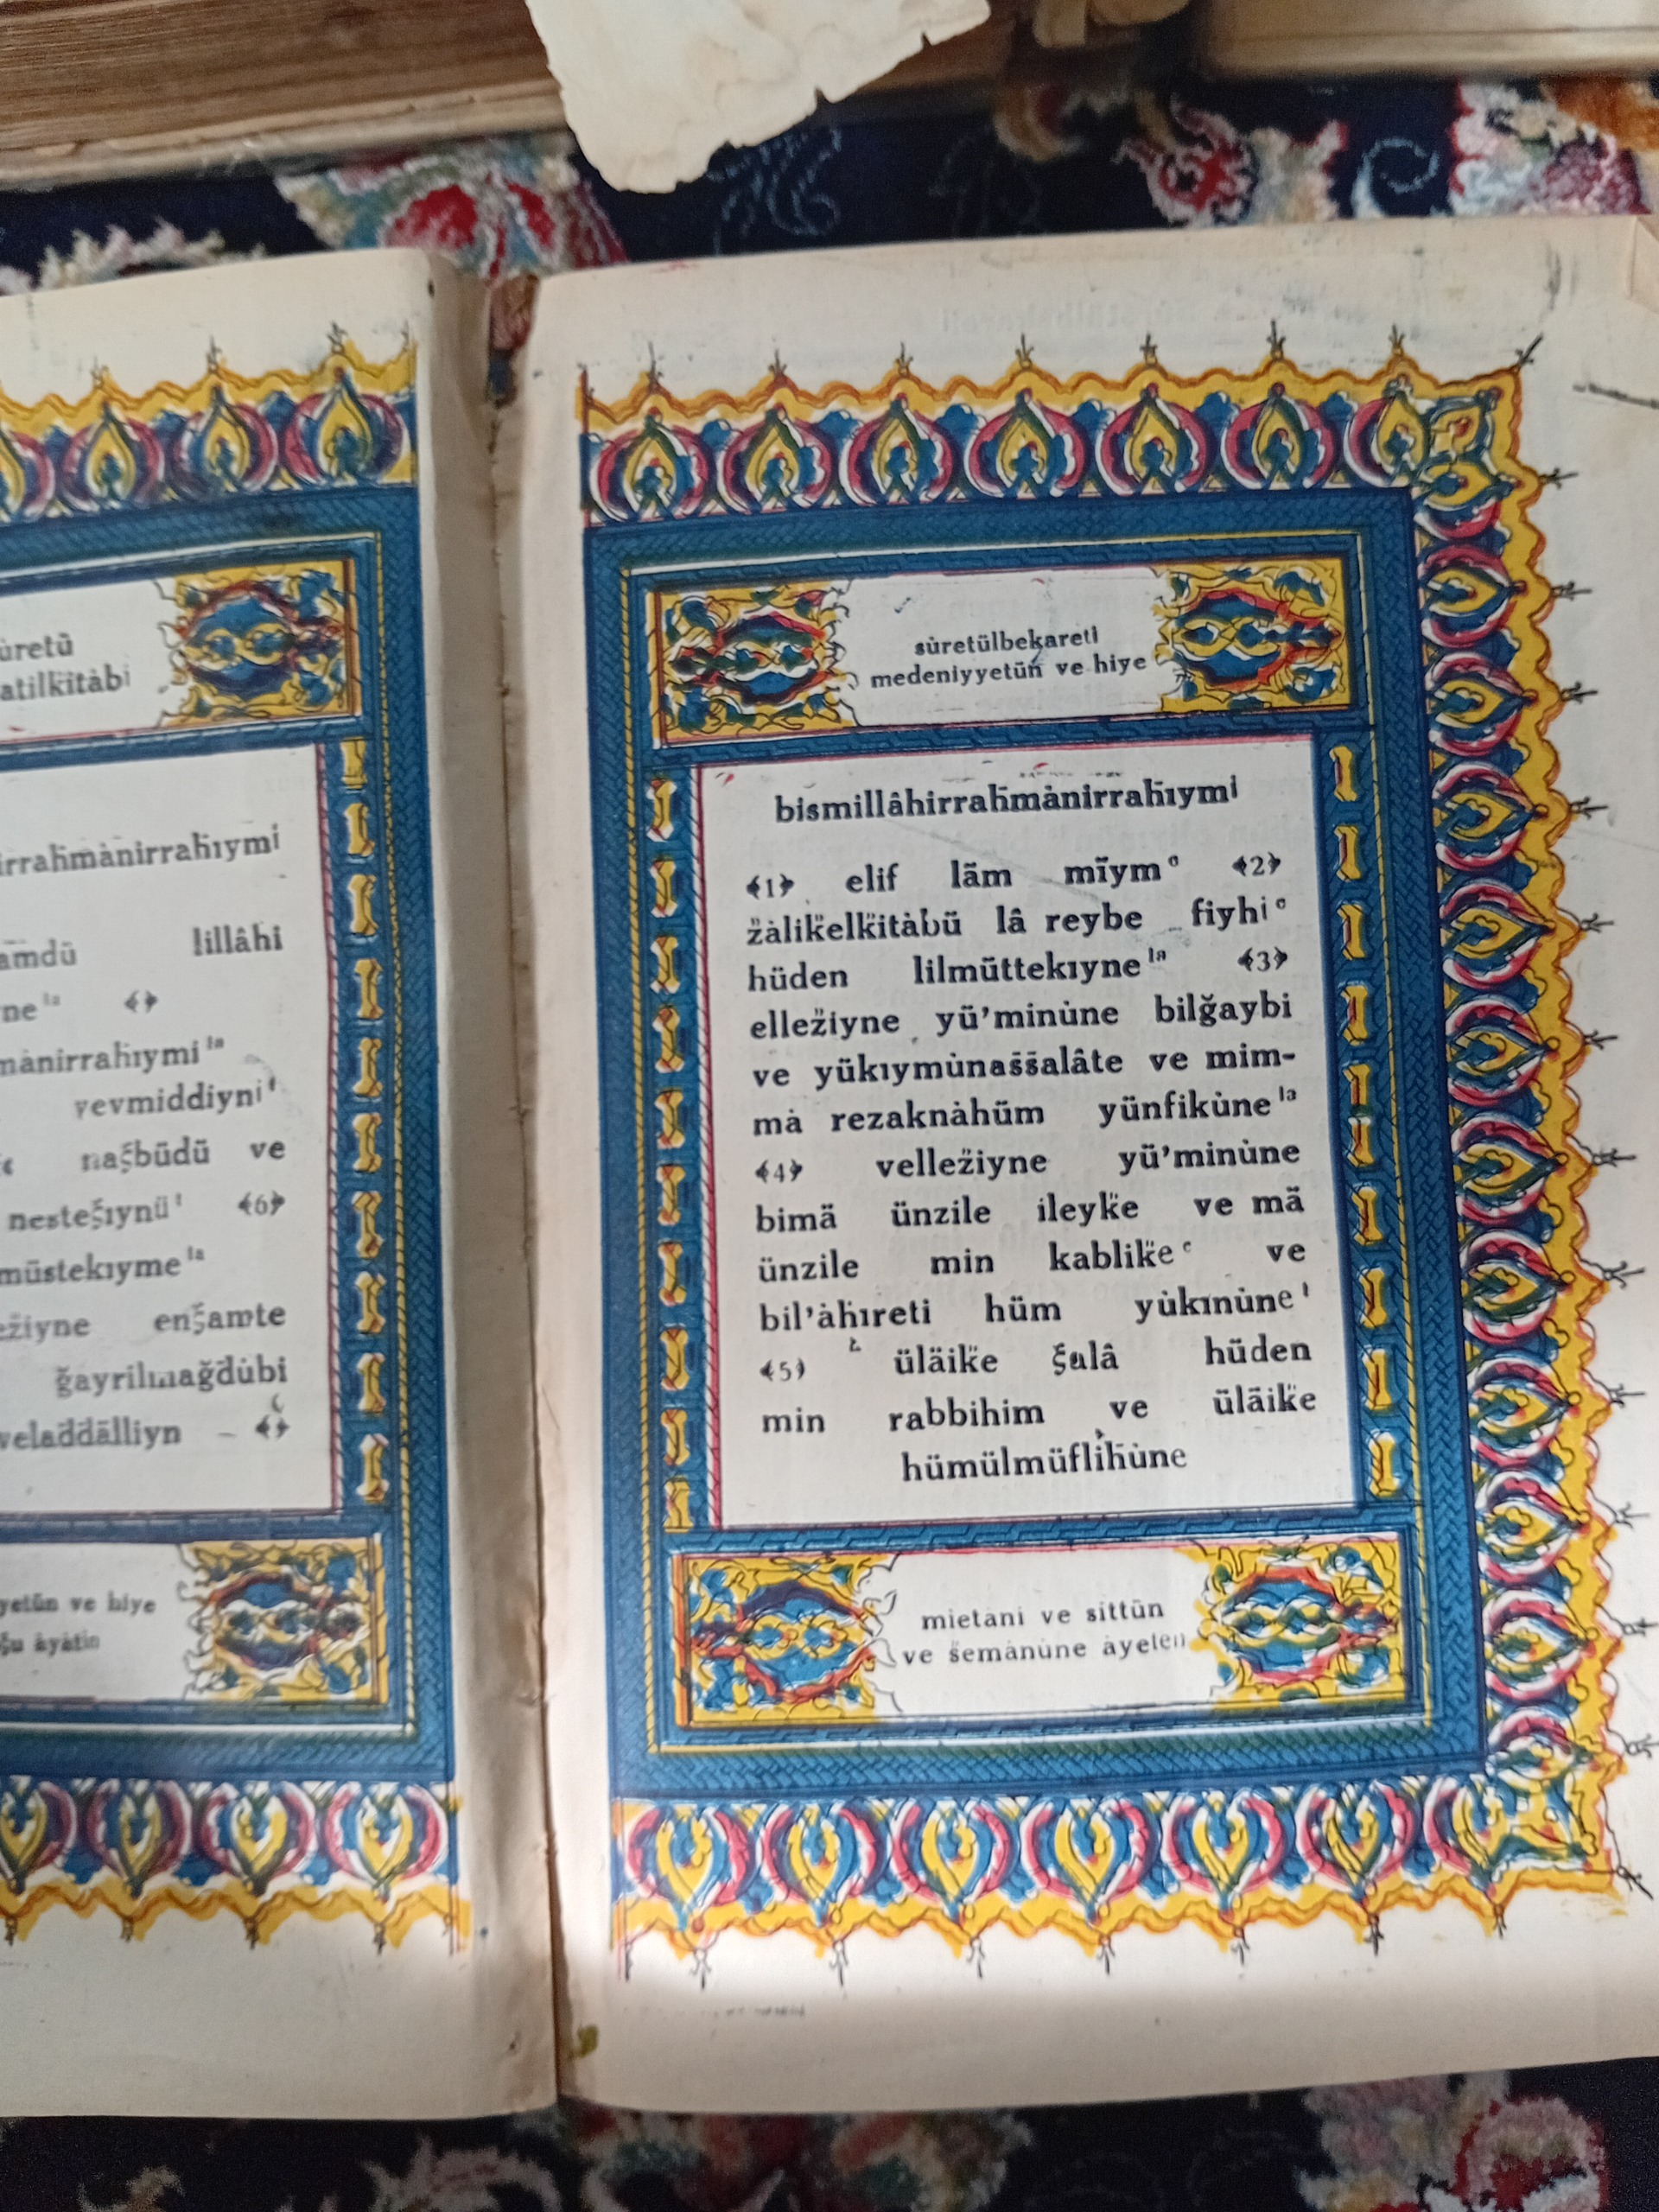 ûretü
atilk̈itȧbi
irrah̄mȧnirrah̄ıymi
amdü lillâhi
ne la
mȧnirrah̄ıymi la
yevmiddiyni t
naʿbüdü ve
nesteʿıynü t ﴾6﴿
müstekıyme la
eżiyne enʿamte
ğayrilmağd̄u̇bi
velad̄d̄ālliyn
yetün ve hiye
ʿu ȧyȧtin
su̇retülbekareti
medeniyyetün ve hiye
bismillâhirrah̄mȧnirrah̄ıymi
﴾1﴿ elif lām mīym c ﴾2﴿
z̈ȧlik̈elk̈itȧbü lâ reybe fiyhi c
hüden lilmüttekıyne la ﴾3﴿
ellez̈iyne yü’minu̇ne bilğaybi
ve yükıymu̇nas̄s̄alâte ve mim-
mȧ rezaknȧhüm yünfiku̇ne la
﴾4﴿ vellez̈iyne yü’minu̇ne
bimā ünzile ileyk̈e ve mā
ünzile min kablik̈e c ve
bil’ȧh̄ıreti hüm yu̇kınu̇ne t
﴾5﴿ ülāik̈e ʿalâ hüden
min rabbihim ve ülāik̈e
hümülmüflih̄u̇ne
mietȧni ve sittün
ve s̈emȧnu̇ne ȧyeten